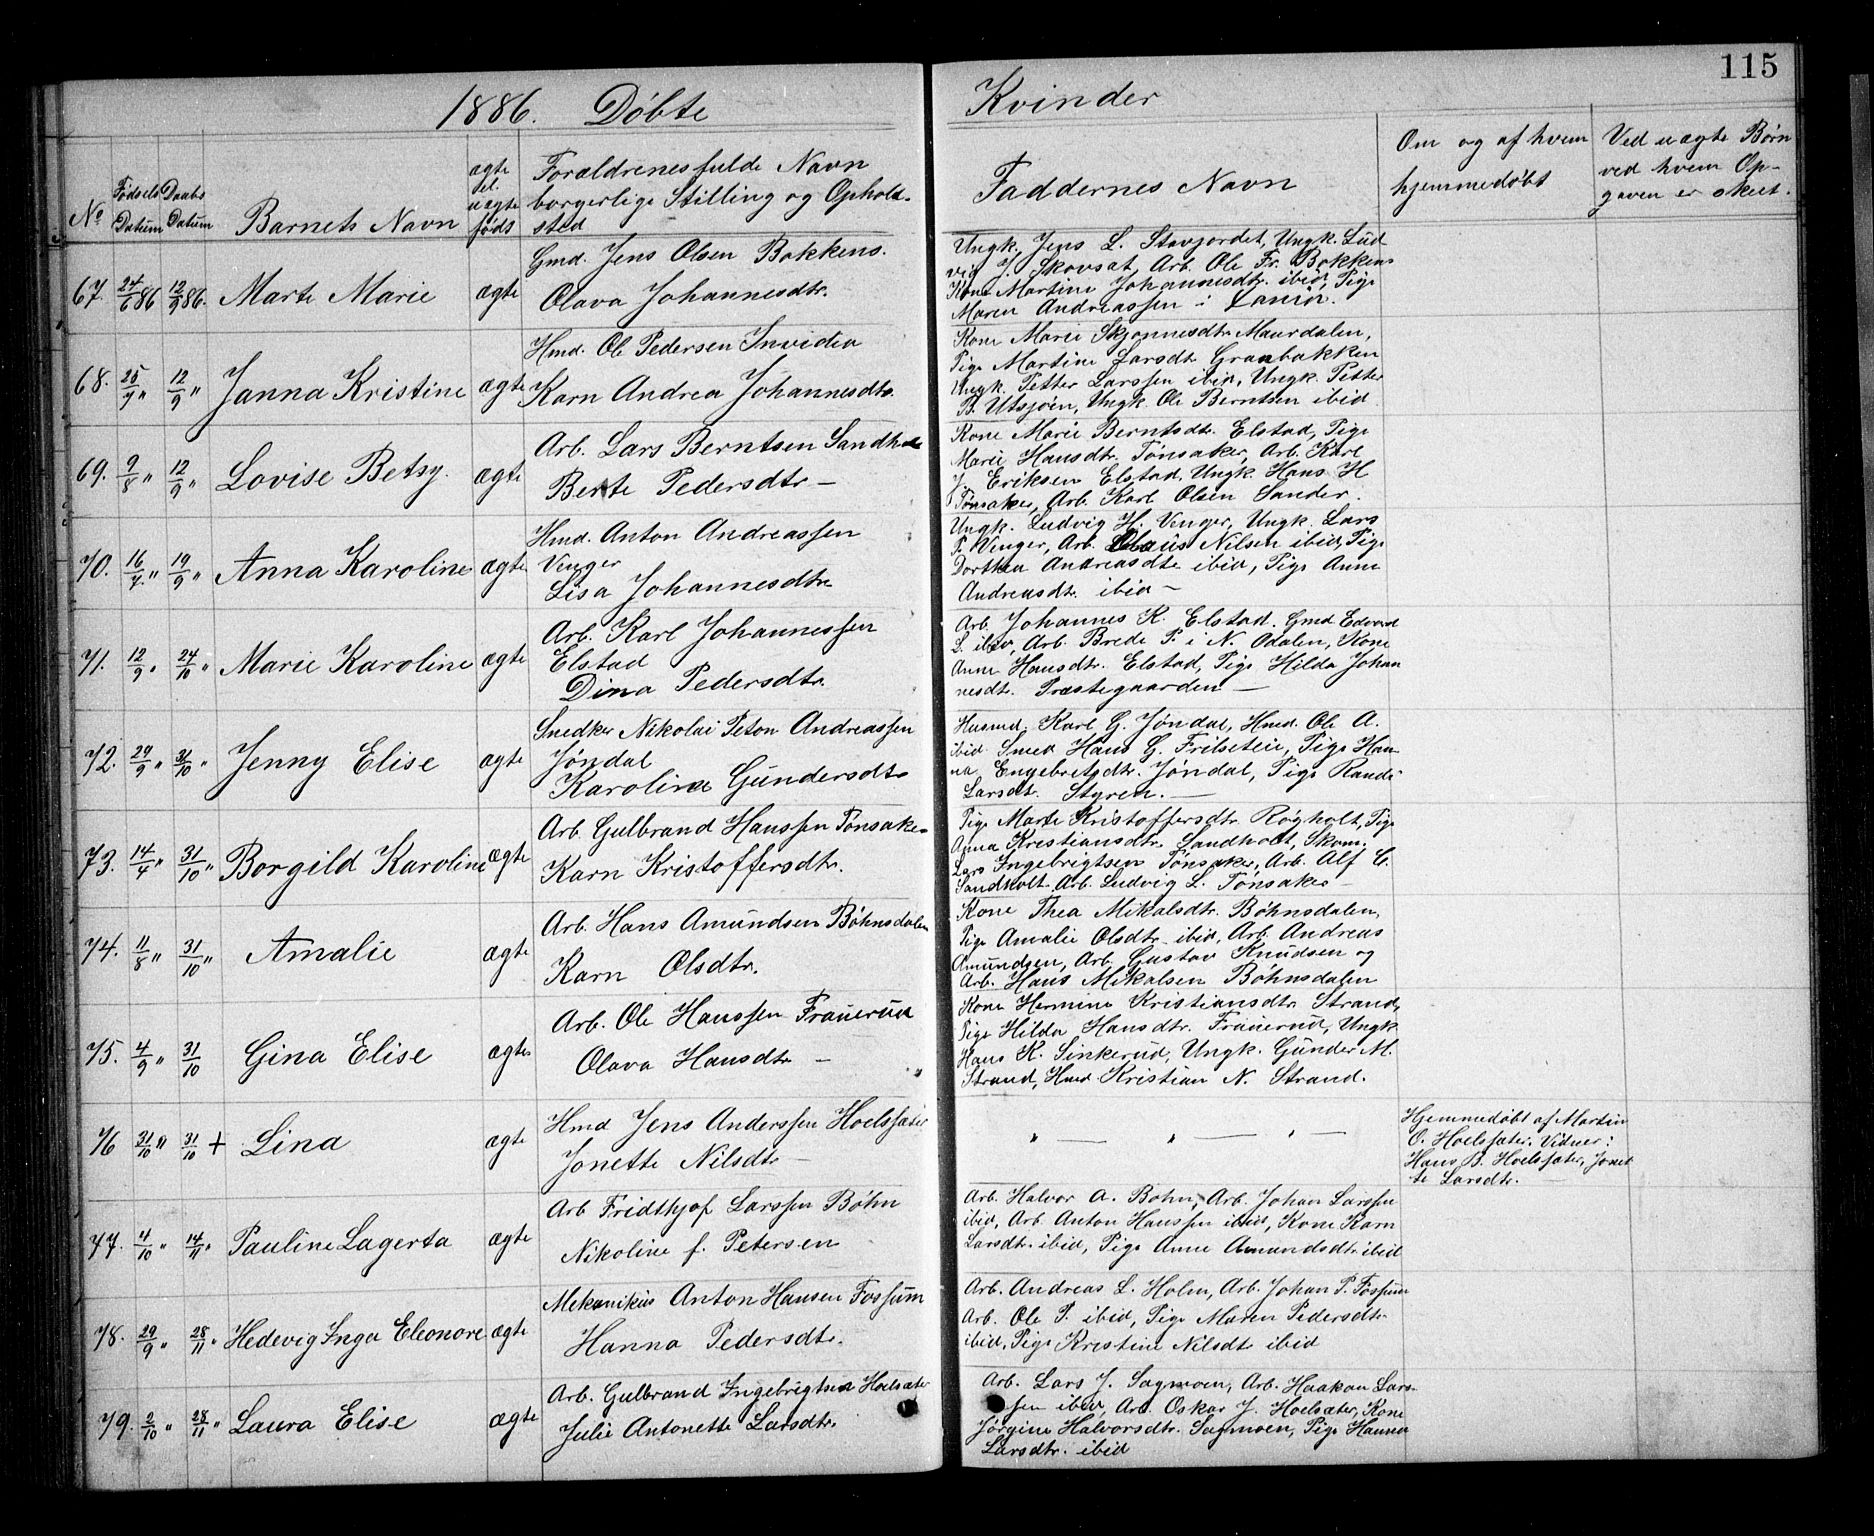 115
1886. Døbte
Kvinder
No
Fødsels Datum
Daabs Datum
Barnets Navn
ægte el. uægte føds
Forældrenes fulde Navn
borgerlige Stilling og Ophold-
sted
Faddernes Navn
Om og af hvem
hjemmedøbt
Ved uægte Børn
ved hvem Op-
gaven er skeet.
67. 24/6 86 12/9 86. Marte Marie ægte
Gmd. Jens Olsen Bakkens.
Olava Johannesdtr.
Ungk. Jens L. Stavjordet, Ungk. Lud
vig J. Skovsat, Arb. Ole Fr. Bakkens
Kone Martine Johannesdtr. ibid, Pige
Maren Andreassen i
68. 25/7 " 12/9 " Janna Kristine ægte
Hmd. Ole Pedersen
Karn Andrea Johannesdtr.
Kone Marie Maurdalen,
Pige Martine Larsdt. Granbakken
Ungk. Petter Larssen ibid, Ungk. Petter
B. Utsjøen, Ungk. Ole Berntsen ibid
69. 9/8 " 12/9 " Lovise Betsy. ægte
Arb. Lars Berntsen
Berte Pedersdtr —
Kone Marie Berntsdtr. Elstad, Pige
Marie Hansdtr. Tønsaker, Arb. Karl
J. Eriksen Elstad, Ungk. Hans H
Tønsaker, Arb. Karl Olsen Sander.
70. 16/7. " 19/9 " Anna Karoline ægte
Hmd. Anton Andreassen
Venger
Lisa Johannesdtr
Ungk. Ludvig H. Venger, Ungk. Lars
P. Venger, Arb. Nilsen ibid, Pige
Dorthea Andreasdtr ibid, Pige Anne
Andreasdtr. ibid —
71. 12/9 " 24/10 " Marie Karoline ægte
Arb. Karl Johannessen
Elstad
Dina Pedersdtr.
Arb. Johannes K. Elstad. Gmd Edvard
L. ibid, Arb. Brede P. i N. Odalen, Kone
Anne Hansdtr. Elstad, Pige Hilda Johan
nesdtr. Præstegaarden —
72. 29/9 " 31/10 " Jenny Elise ægte
Snedker Nikolai Peton Andreassen
Jøndal
Karoline Gundersdtr
Husmd. Karl G. Jøndal, Hmd. Ole A.
ibid Smed Hans G. Pige Han
na Engebretsdtr. Jøndal, Pige Randi
Larsdtr. Styren. —
73. 14/4 " 31/10 " Borgild Karoline ægte
Arb. Gulbrand Hanssen Tønsaker
Karn Kristoffersdtr.
Pige Marte Kristoffersdtr Røgholt, Pige
Anna Kristiansdtr. Sandholt, Skom.
Lars Ingebrigtsen Tønsaker, Arb. Alf C.
Sandholt. Arb. Ludvig L. Tønsaker —
74. 11/8 " 31/10 " Amalie ægte
Arb. Hans Amundsen Bøhnsdalen
Karn Olsdtr.
Kone Thea Mikalsdtr. Bøhnsdalen,
Pige Amalie Olsdtr. ibid, Arb. Andreas
Amundsen, Arb. Gustav Knudsen og
Arb. Hans Mikalsen Bøhnsdalen
75. 4/9 " 31/10 Gina Elise ægte
Arb. Ole Hanssen Frauerud
Olava Hansdtr —
Kone Hermine Kristiansdtr. Strand,
Pige Hilda Hansdtr. Frauerud, Ungk.
Hans K. Sinkerud, Ungk. Gunder M.
Strand, Hmd Kristian N. Strand.
76 31/10 " 31/10 + Lina ægte
Hmd Jens Anderssen Hoelsæter
Jonette Nilsdtr —
" — " — " —
Hjemmedøbt af Martin
O. Hoelsæter. Vidner:
Hans B. Hoelsæter, Jonet
te Larsdtr. —
77. 4/10 " 14/11 " Pauline Lagerta ægte
Arb Fridthjof Larssen Bøhn
Nikoline f. Petersen
Arb. Halvor A. Bøhn, Arb. Johan Larssen
ibid, Arb. Anton Hanssen ibid, Kone Karn
Larsdtr. ibid, Pige Anne Amundsdtr. ibid
78. 29/9 " 28/11 " Hedevig Inga Eleonore ægte
Mekanikus Anton Hansen Fossum
Hanna Pedersdtr.
Arb. Andreas L. Holm, Arb. Johan P. Fossum
Arb. Ole P. ibid, Pige Maren Pedersdtr
ibid, Pige Kristine Nilsdt ibid
79. 2/10 " 28/11 " Laura Elise ægte
Arb. Gulbrand Ingebrigtsen Hoelsæter
Julie Antonette Larsdtr.
Arb. Lars J. Sagmoen, Arb. Haakon Lars-
sen ibid, Arb. Oskar J. Hoelsæter, Kone
Jørgine Halvorsdtr. Sagmoen, Pige Hanna
Larsdtr. ibid